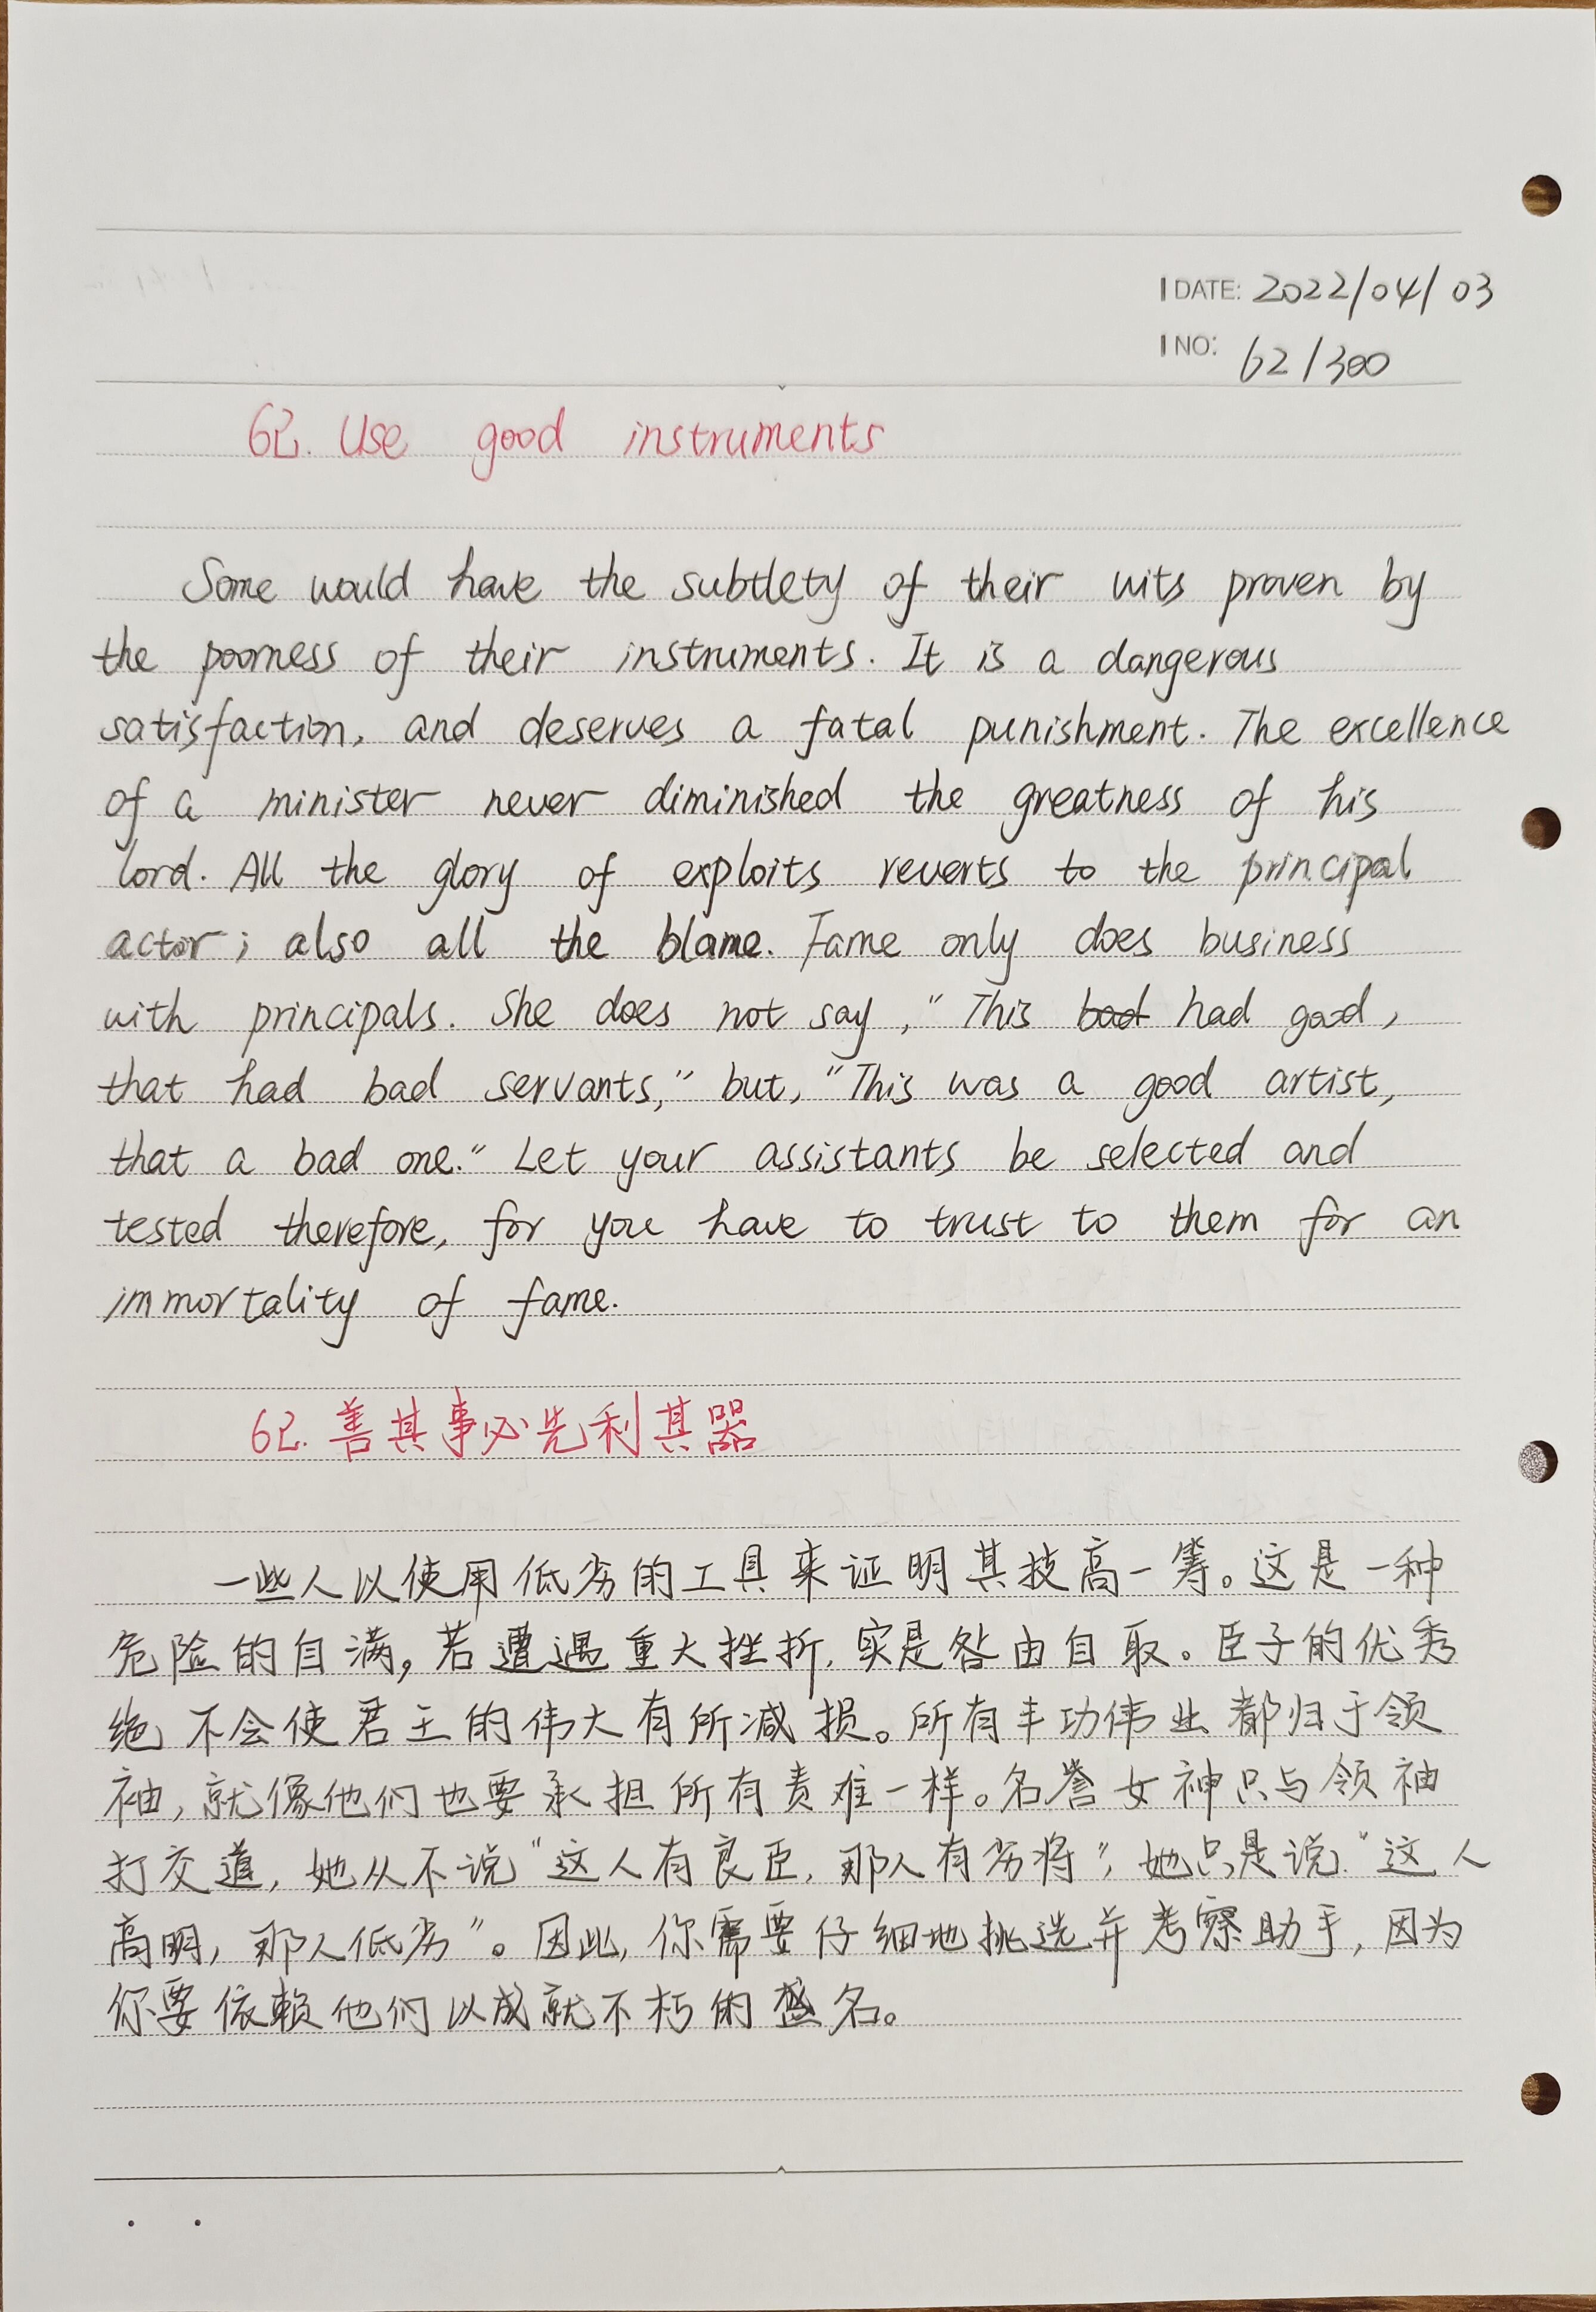 DATE: 2022/04/03
NO: 62/300
62. Use good instruments
Some would have the subtlety of their wits proven by
the poorness of their instruments. It is a dangerous
satisfaction, and deserves a fatal punishment. The excellence
of a minister never diminished the greatness of his
lord. All the glory of exploits reverts to the principal
actor; also all the blame. Fame only does business
with principals. She does not say, "This bad had good,
that had bad servants," but, "This was a good artist,
that a bad one." Let your assistants be selected and
tested therefore, for you have to trust to them for an
immortality of fame.
62. 善其事必先利其器
一些人以使用低劣的工具来证明其技高一筹。这是一种
危险的自满，若遭遇重大挫折，实是咎由自取。臣子的优秀
绝不会使君王的伟大有所减损。所有丰功伟业都归于领
袖，就像他们也要承担所有责难一样。名誉女神只与领袖
打交道，她从不说"这人有良臣，那人有劣将"，她只是说"这人
高明，那人低劣"。因此，你需要仔细地挑选并考察助手，因为
你要依赖他们以成就不朽的盛名。